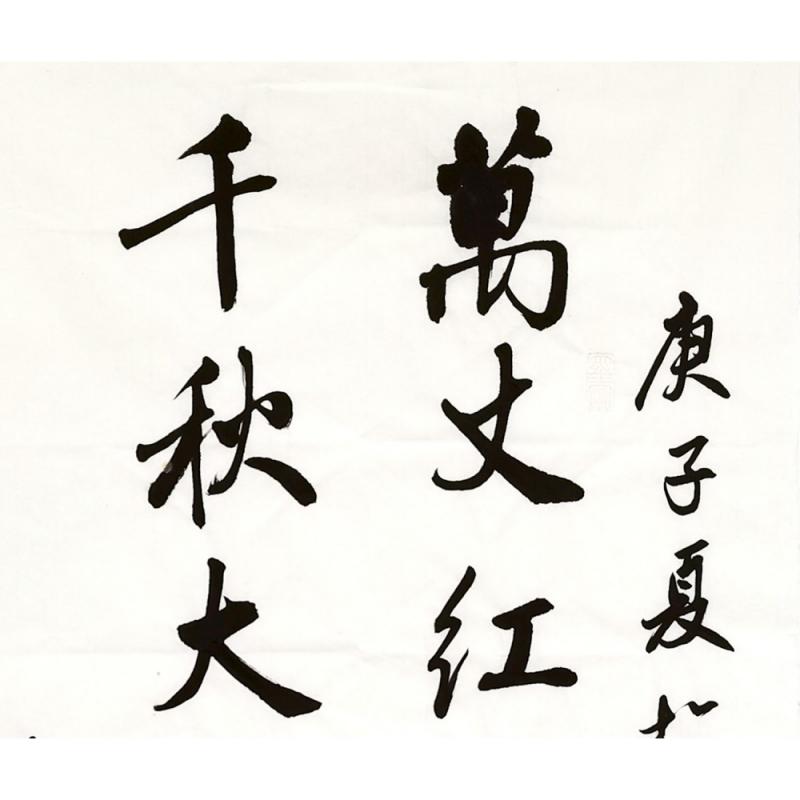 庚子夏
萬丈红
千秋大